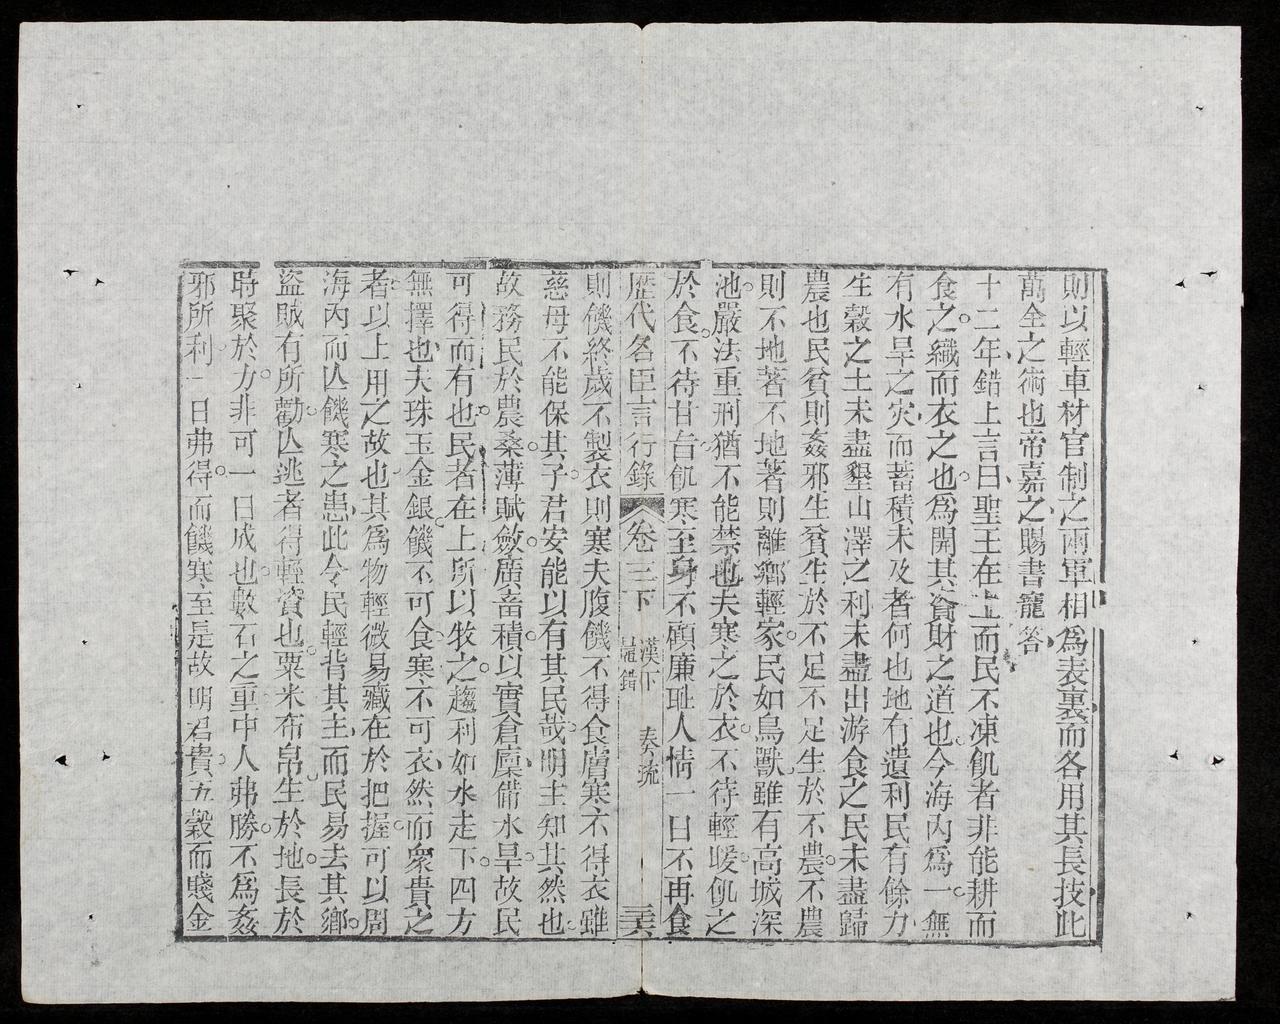 則以輕車材官制之兩軍相爲表裏而各用其長技此
萬全之術也帝嘉之賜書寵答
十二年錯上言曰聖王在上而民不凍飢者非能耕而
食之織而衣之也爲開其資財之道也今海內爲一無
有水旱之灾而蓄積未及者何也地有遺利民有餘力
生穀之土未盡墾山澤之利未盡出游食之民未盡歸
農也民貧則姦邪生貧生於不足不足生於不農不農
則不地著不地著則離鄉輕家民如鳥獸雖有高城深
池嚴法重刑猶不能禁也夫寒之於衣不待輕暖飢之
於食不待甘旨飢寒至身不顧廉耻人情一日不再食
歷代名臣言行錄 卷三下 漢下 鼂錯 奏疏 三六
則饑終歲不製衣則寒夫腹饑不得食膚寒不得衣雖
慈母不能保其子君安能以有其民哉明主知其然也
故務民於農桑薄賦斂廣畜積以實倉廩備水旱故民
可得而有也民者在上所以牧之趨利如水走下四方
無擇也夫珠玉金銀饑不可食寒不可衣然而衆貴之
者以上用之故也其爲物輕微易藏在於把握可以周
海內而亾饑寒之患此令民輕背其主而民易去其鄉
盜賊有所勸亾逃者得輕資也粟米布帛生於地長於
時聚於力非可一日成也數石之重中人弗勝不爲姦
邪所利一日弗得而饑寒至是故明君貴五穀而賤金